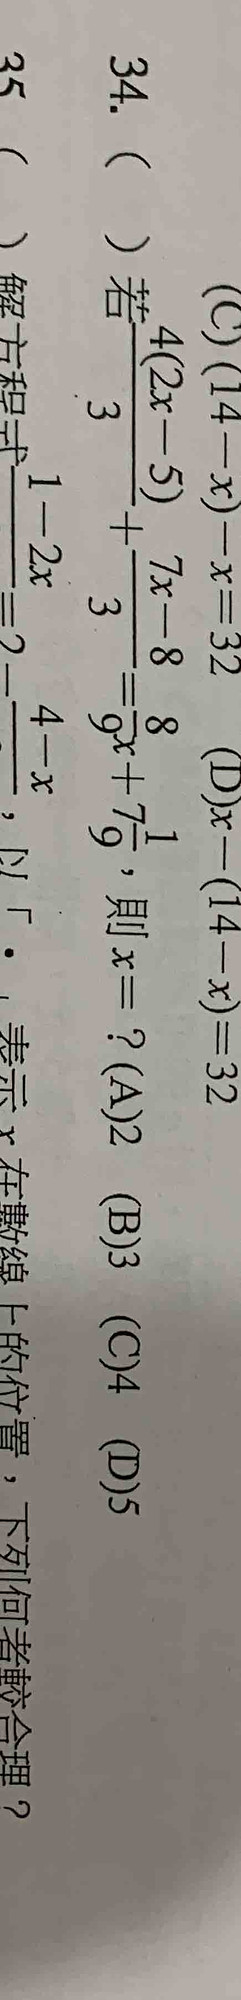 (C)(14−x)−x=32 (D)x−(14−x)=32
34. ( ) 若 4(2x−5)/3 + 7x−8/3 = 8/9 x + 7 1/9 , 則 x= ? (A)2 (B)3 (C)4 (D)5
35 ( ) 解方程式 1−2x = 2− 4−x , 以「・」表示 x 在數線上的位置,下列何者較合理?